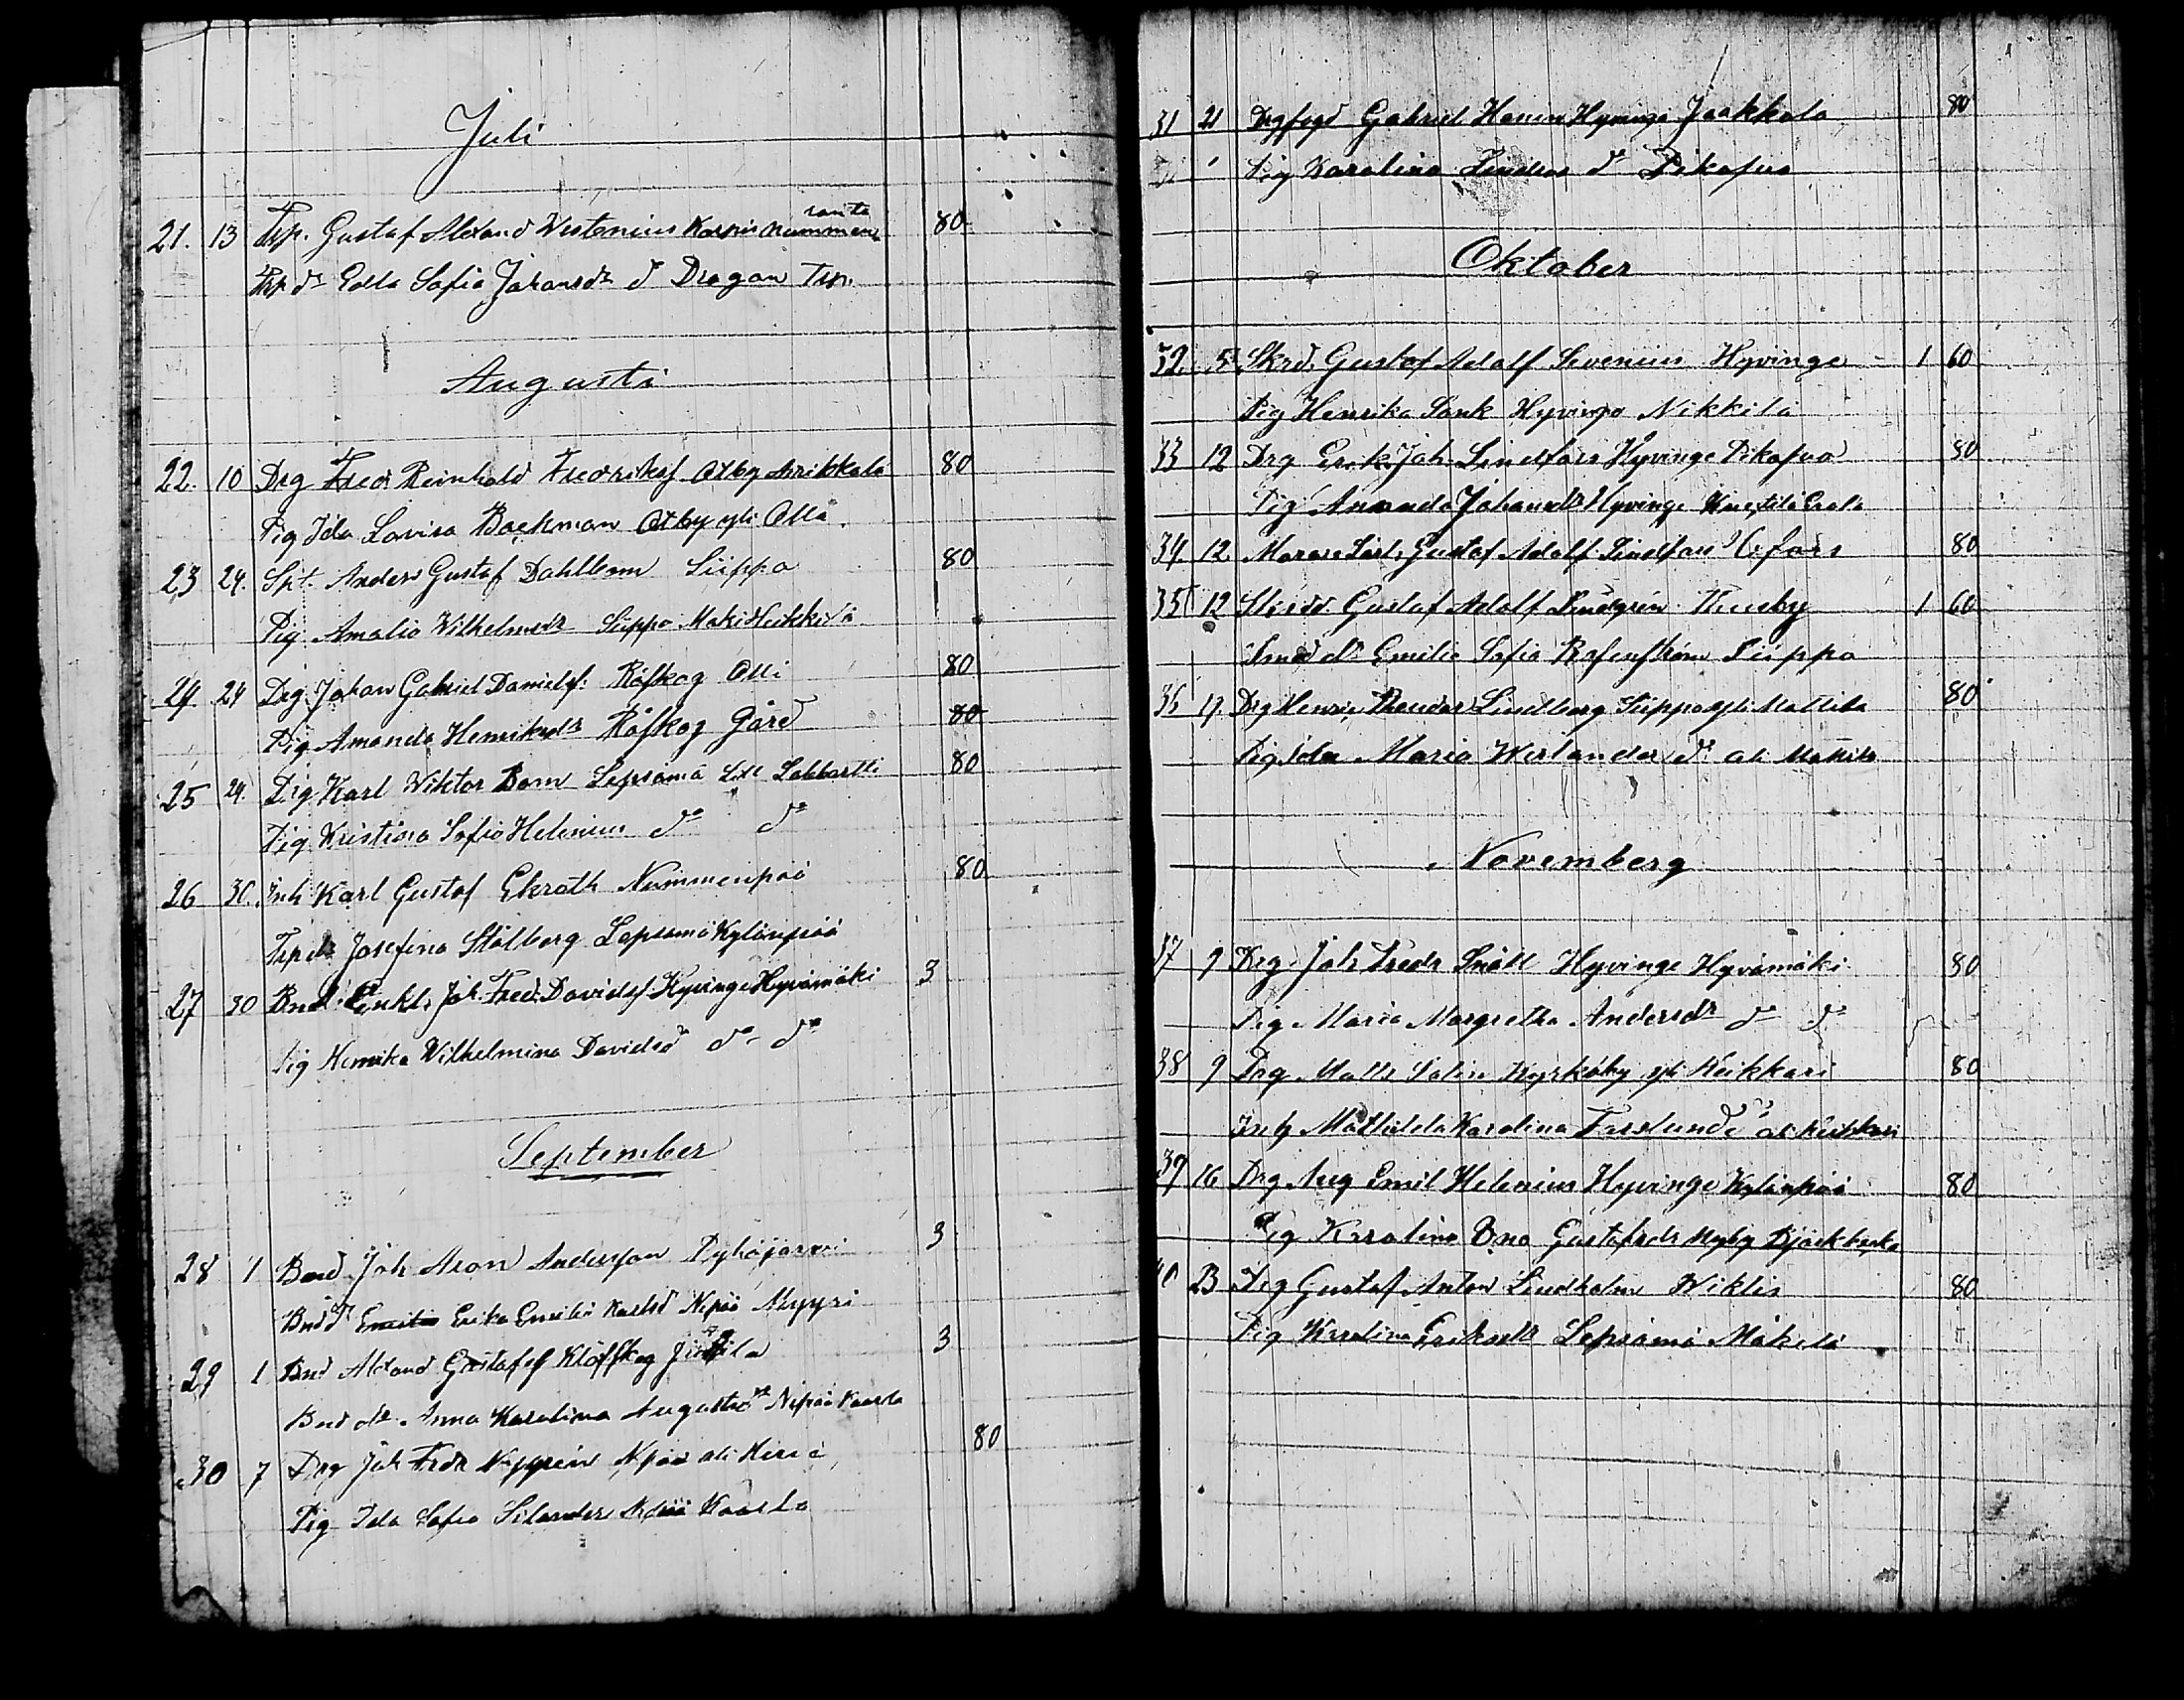 Juli
21. 13 Trp. Gustaf Alexand Westenius Korpis Nummen ranta 80
Trp dr Edla Sofia Johansdr do Dragon Trp.
Augusti
22. 10 Drg Fredr Reinhold Fredriksf. Otby 80
Pig Ida Lovisa Backman Otby yli Olla.
23 24. Spt. Anders Gustaf Dahlbom Siippo 80
Pig. Amalia Wilhelmsdr Siippo Mäki Heikkilä
24. 24 Drg. Johan Gabriel Danielsf. Röfkog Olli 80
Pig Amanda Henriksdr Röfkog Gård 80
25 24. Drg Karl Wiktor Bom Lepsämä Lill Labbartti 80
Pig Kristina Sofia Helenius do do
26 30. Inh Karl Gustaf Ekroth Nummenpää 80
Trp dr Josefina Stålberg Lepsämä Kylänpää
27 30 Bnd. Enkl. Joh. Fred. Davidsf. Hyvinge Hyvämäki 3
Pig Henrika Wilhelmina Davidsdr do do
September
28 1 Bnd Joh Aron Andersson Pyhäjärvi 3
Bnd dr Emilia Erika Emilia Karlsd Nepää Nyyri
29 1 Bnd Alexand Gustafsf Klöfskog 3
Bnd dr. Anna Karolina Augustsdr Nepää Kaarla
30 7 Drg Joh Fredr Nygrén Nepää ali 80
Pig Ida Sofia Silander Nepää Kaarla
31 21 Drgfogd Gabriel Hyvinge Jaakkola 80
Pig Karolina Lindroos do Pikafva
Oktober
32. 5 Skrd. Gustaf Adolf Sevenius Hyvinge 1 60
Pig Henrika Sank Hyvinge Nikkilä
33 12 Drg Erik Joh. Lindfors Hyvinge Pikafva 80
Pig Amanda Johansdr Hyvinge Knektilä Erola
34. 12 Gustaf Adolf Lindfors 80
35 12 Gustaf Adolf Lindgrén Thusby 1 60
Smed dr Emilia Sofia Rosenström Siippo
36 19 Drg Henric Theodor Lindberg Siippo yli Mattila 80
Pig Ida Maria Werlander do ali Mattila
November
37 9 Drg Joh Fredr Snäll Hyvinge Hyvämäki 80
Pig Maria Margretha Andersdr do do
38 9 Drg Matts Salin Kyrkoby yli Keikkari 80
Mathilda Karolina Forslund do ali Keikkari
39 16 Drg Aug Emil Helenius Hyvinge Kylänpää 80
Pig Karolina Gustafsdr Myby
40 23 Drg Gustaf Anton Lindholm Wiklis 80
Pig Karolina Eriksdr Lepsämä Mäkelä